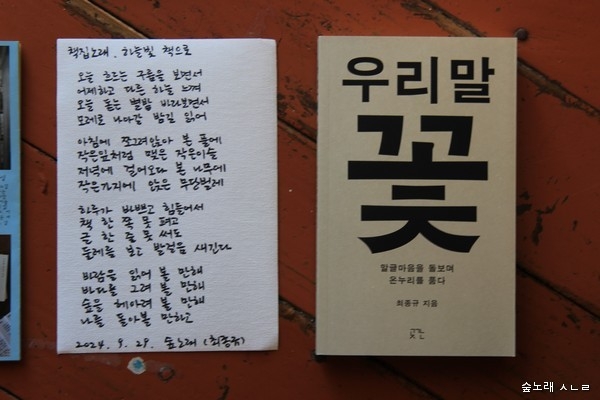 책집노래. 하늘빛 책으로
오늘 흐르는 구름을 보면서
어제하고 다른 하늘 느껴
오늘 돋는 별밤 바라보면서
모레로 나아갈 밤길 읽어
아침에 쪼그려앉아 본 풀에
작은잎처럼 맺은 작은이슬
저녁에 걸어오다 본 나무에
작은가지에 앉은 무당벌레
하루가 바쁘고 힘들어서
책 한 쪽 못 펴고
글 한 줄 못 써도
둘레를 보고 발걸음 새긴다
바람을 읽어 볼 만해
바다를 그려 볼 만해
숲을 헤아려 볼 만해
나를 돌아볼 만하고
2024. 9. 29. 숲노래 (최종규)
우리말
꽃
말글마음을 돌보며
온누리를 품다
최종규 지음
곳간
숲노래 ㅅㄴㄹ